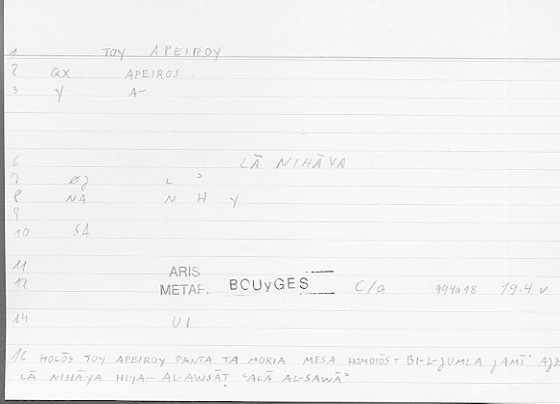 1 TOY APEIROY
2 QX APEIROS
3 Y A-
6 LĀ NIHĀYA
7 ØJ L ʾ
8 NA N H Y
9
10 SA
11 ARIS
12 METAF. BOUYGES C/a 994a18 19.4 v
14 UI
16 HOLŌS TOY APEIROY PANTA TA MORIA MESA HOMOIŌS = BI-L-JUMLA JAMĪʿ AJZ
LĀ NIHĀYA HIYA- AL-AWSĀṬ ʿALĀ AL-SAWĀʾ